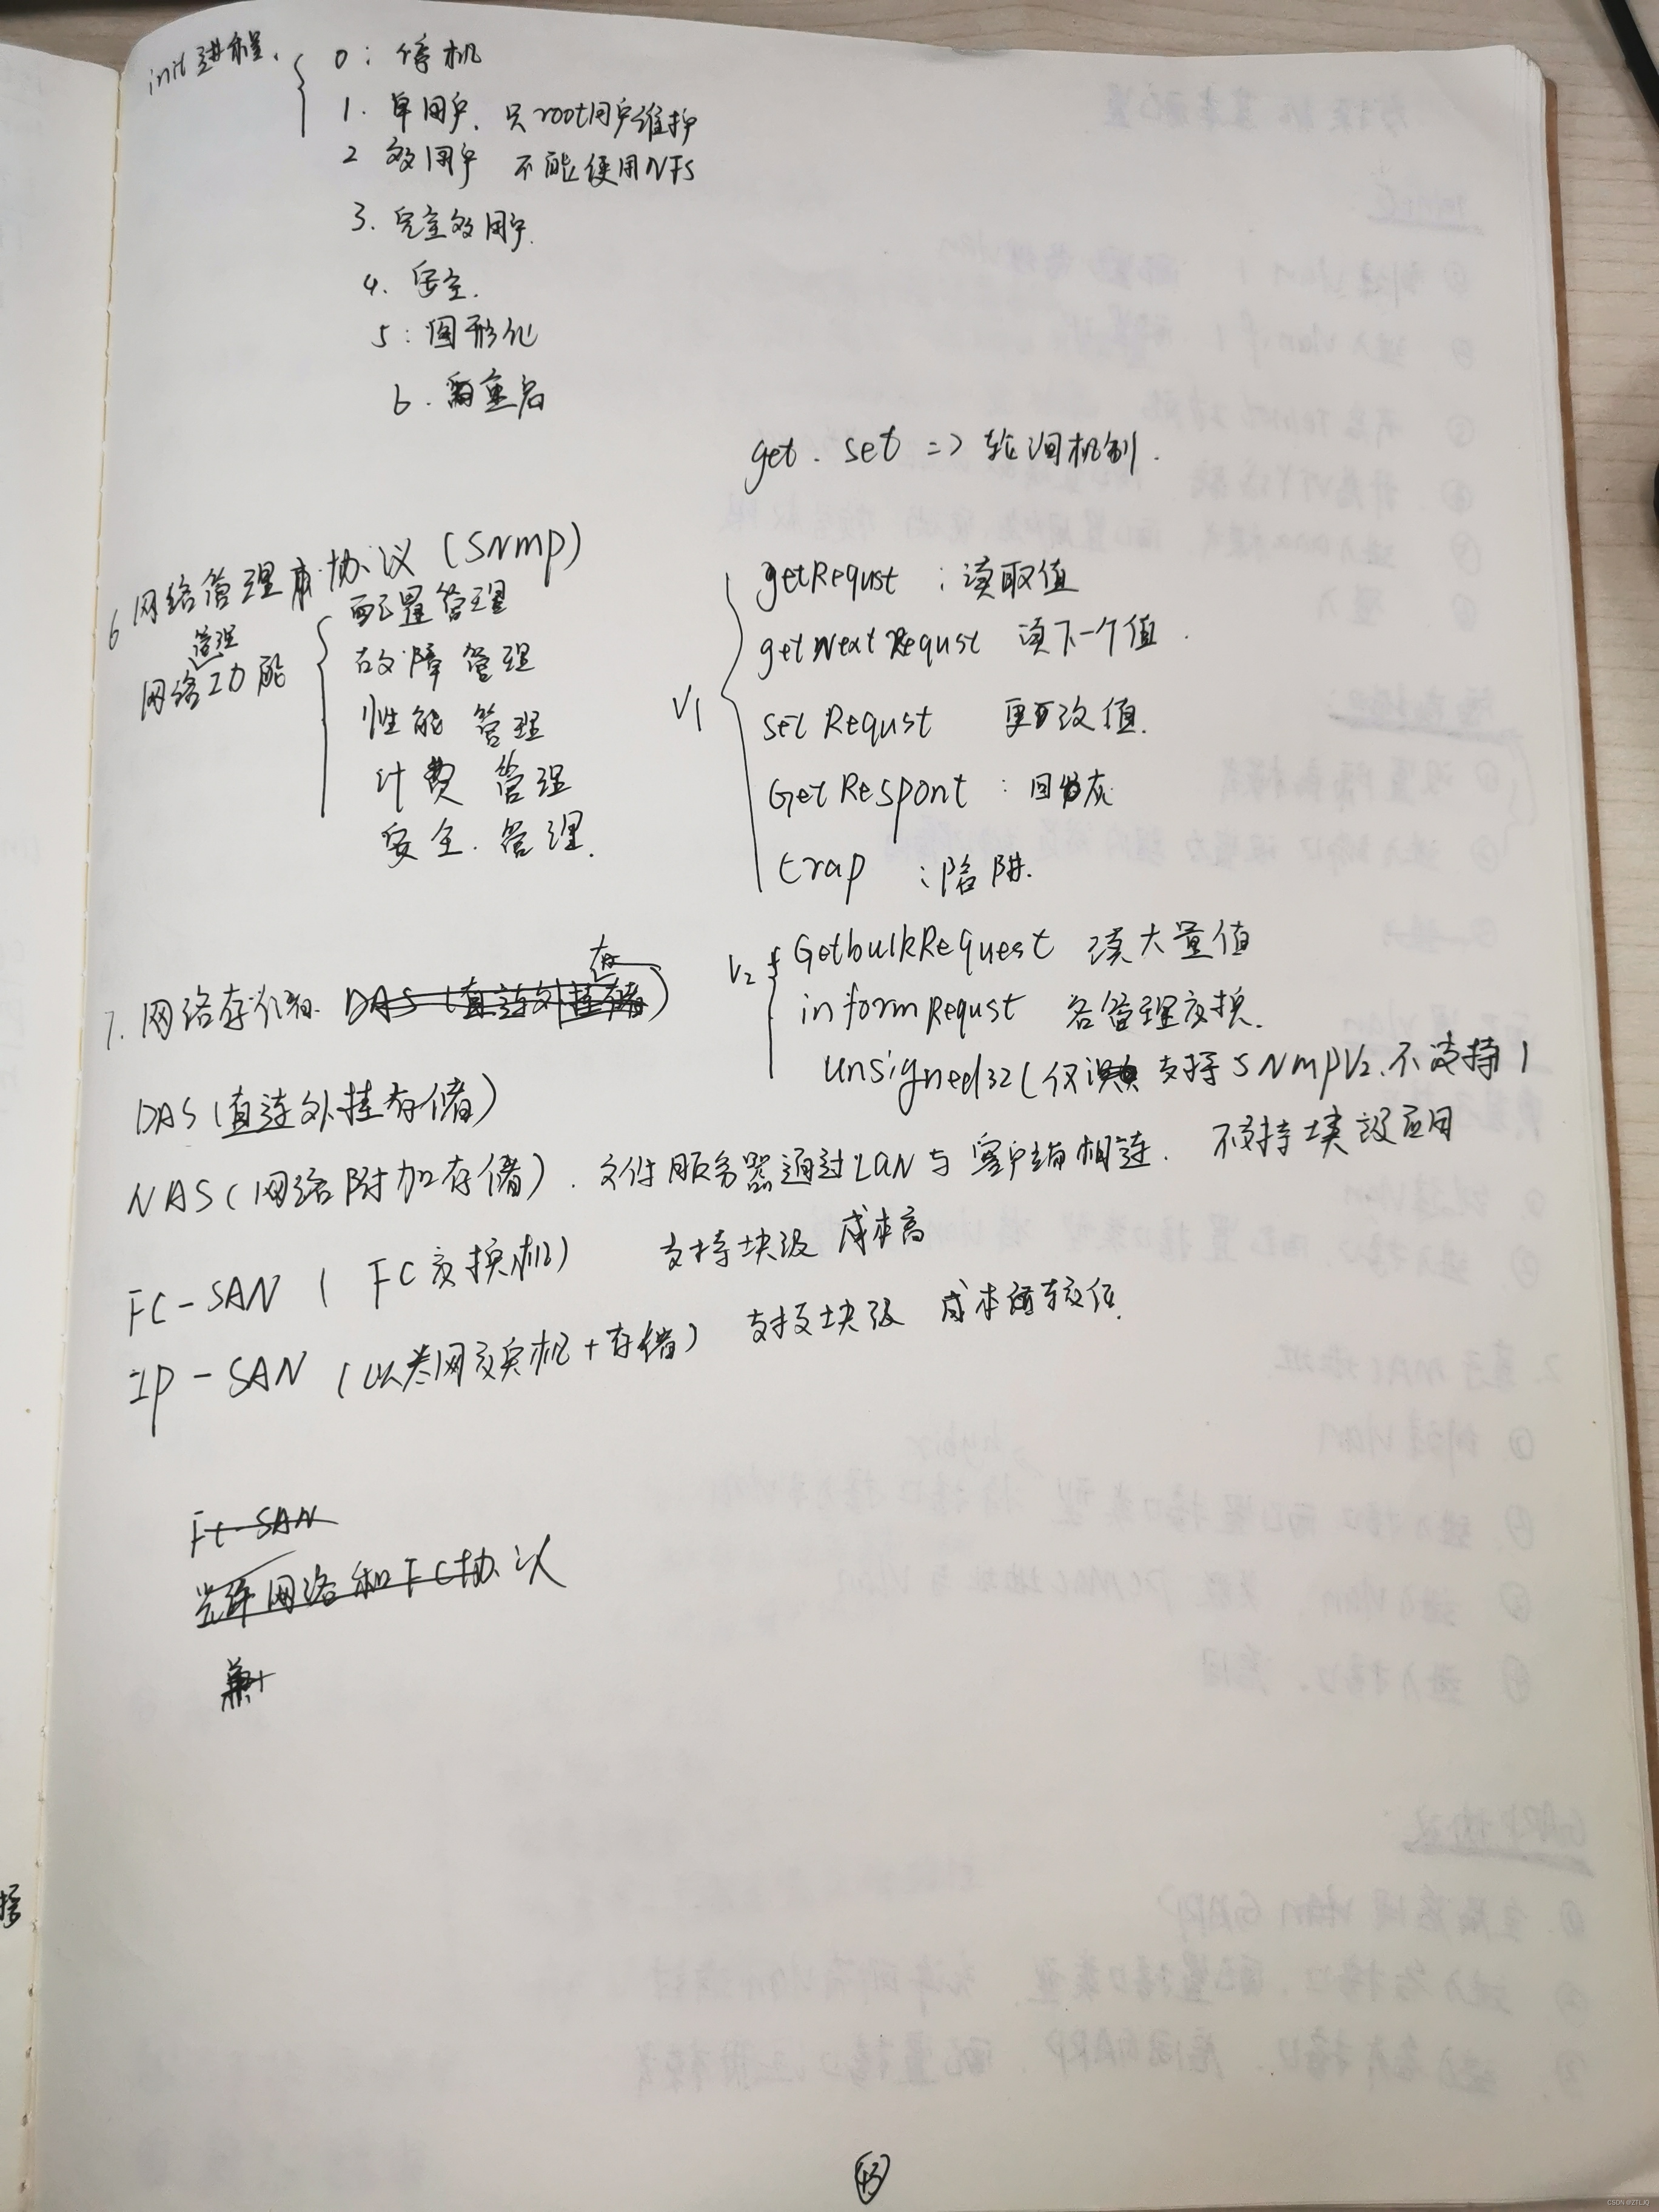 init进程.
0: 停机
1. 单用户、只root用户维护
2 多用户 不能使用NFS
3. 完全多用户.
4. 安全.
5: 图形化
6. 重启
get. set => 轮询机制.
6 网络管理 协议 (SNmp)
网络管理功能
配置管理
故障管理
性能 管理
计费 管理
安全. 管理.
V1
getRequst : 读取值
getNextRequst 读下一个值.
set Requst 更改值.
Get Respont : 回应
trap : 陷阱.
V2
GetbulkRequest 读大量值
informRequst 各管理交换.
unsigned32(仅 支持SNmpV2.不支持1
7. 网络存储. DAS (直连外挂存储)
DAS (直连外挂存储)
NAS (网络附加存储). 文件服务器通过LAN与客户端相连. 不支持块级应用
FC-SAN ( FC交换机) 支持块级 成本高
IP-SAN (以太网交换机+存储) 支持块级 成本较低.
FC-SAN
光纤网络和FC协议
43
CSDN @ZTLJQ